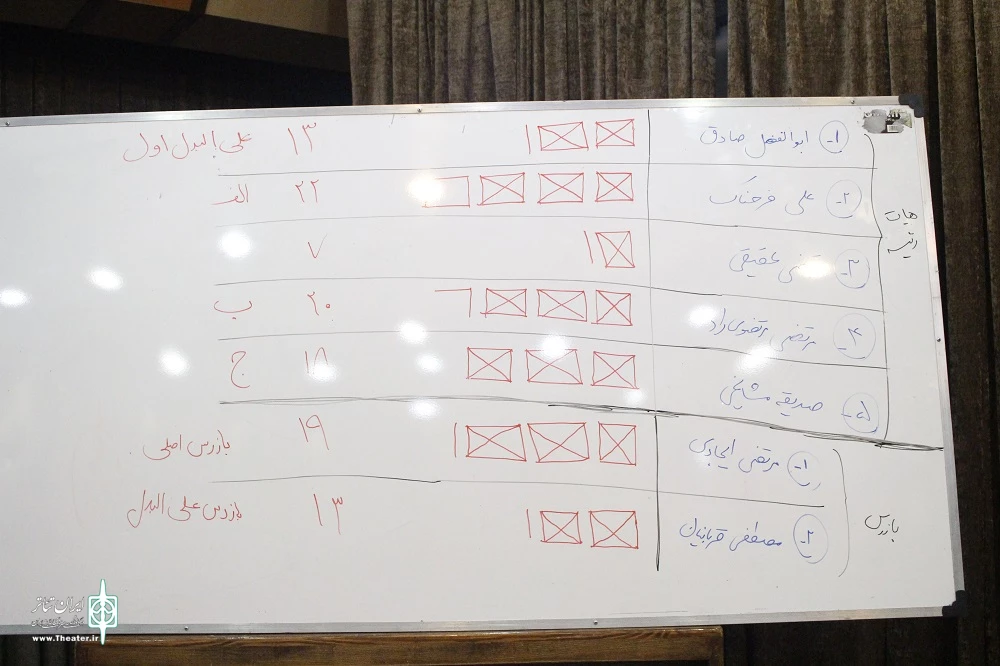 هیات رئیسه
۱- ابوالفضل صادق ۱۳ علی البدل اول
۲- علی فرحناک ۲۲ الف
۳- مرتضی حقیقی ۷
۴- مرتضی مرتضوی راد ۲۰ ب
۵- صدیقه مشایخی ۱۸ ج
بازرس
۱- مرتضی ایجادی ۱۹ بازرس اصلی
۲- مصطفی قربانیان ۱۳ بازرس علی البدل
ایران تئاتر
www.Theater.ir